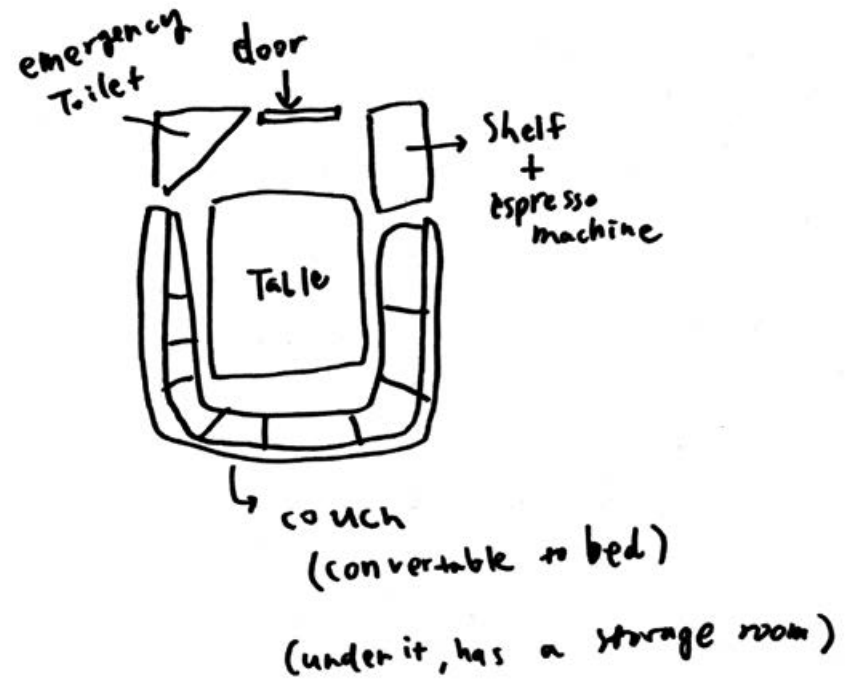 emergency
Toilet
door
Shelf
+
espresso
machine
Table
couch
(convertable to bed)
(under it, has a storage room)